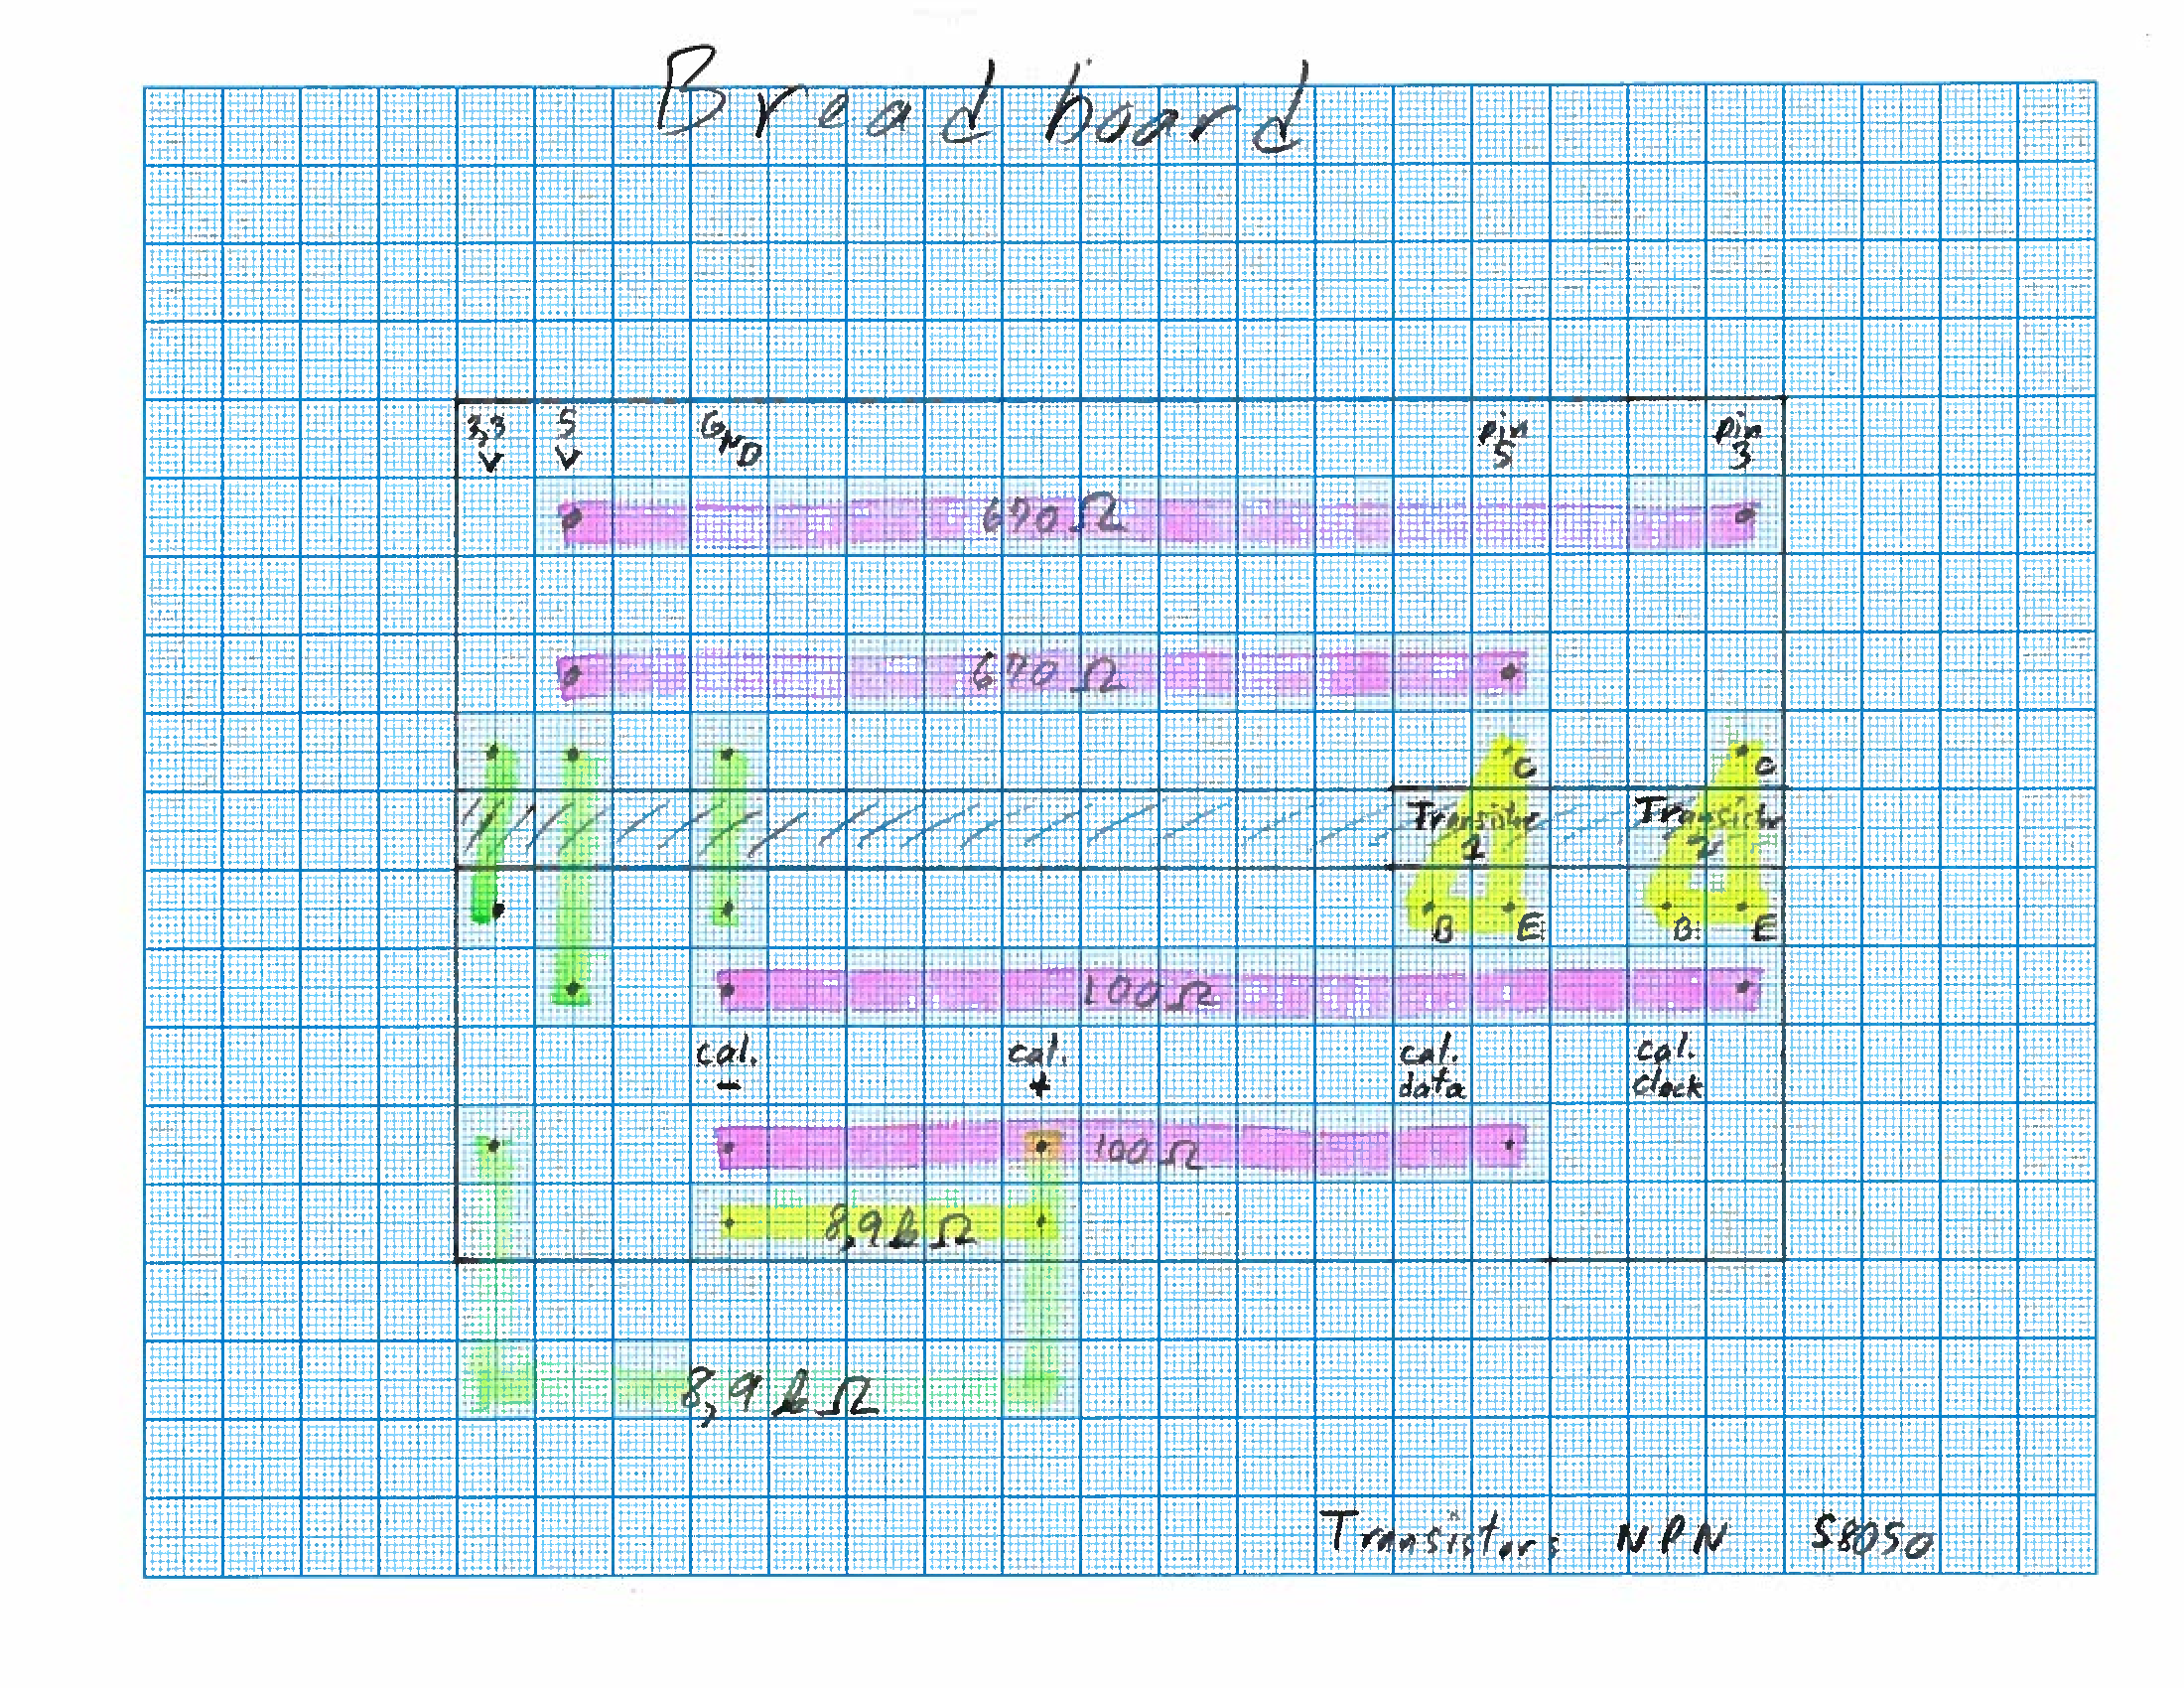 Breadboard
3,3 V
5 V
GND
pin 5
pin 3
670 Ω
670 Ω
C
C
Transistor 1
Transistor 2
B
E
B
E
100 Ω
cal. -
cal. +
cal. data
cal. clock
100 Ω
8,9 k Ω
8,9 k Ω
Transistors NPN S8050